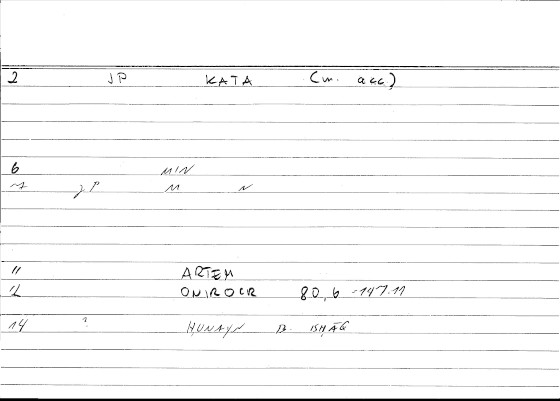 2 JP KATA (w. acc.)
6 MIN
JP M N
11 ARTEM
12 ONIROCR 80,6 -147.11
14 ? ḤUNAYN B. ISḤĀQ